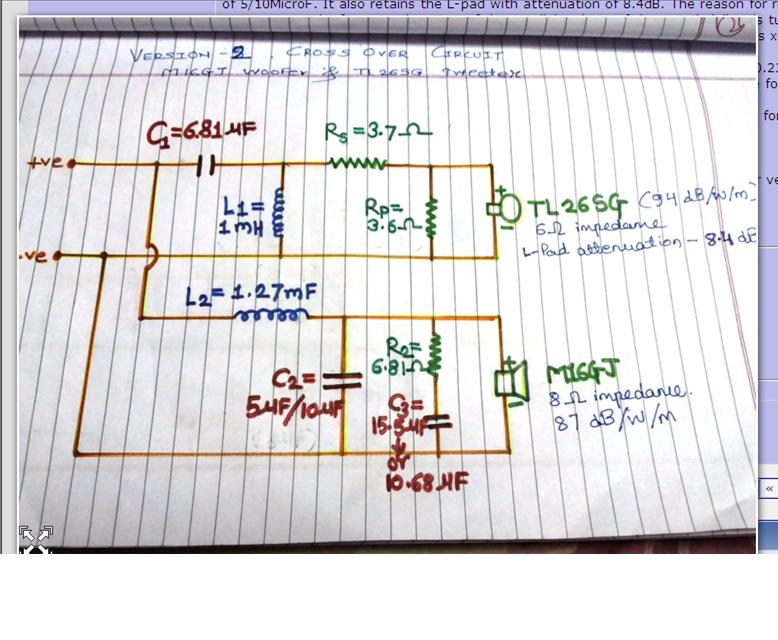 of 5/10MicroF. It also retains the L-pad with attenuation of 8.4dB. The reason for
VERSION-2. CROSS OVER CIRCUIT
M16GJ woofer & TL26SG Tweeter
C1=6.81µF
Rs=3.7Ω
+ve
L1=
1mH
Rp=
3.6Ω
+
-
TL26SG (94 dB/W/m)
6Ω impedance
L-Pad attenuation - 8.4 dB
-ve
L2=1.27mF
C2=
5µF/10µF
R2=
6.81Ω
C3=
15.5µF
or
10.68µF
+
-
M16GJ
8Ω impedance.
87 dB/W/m